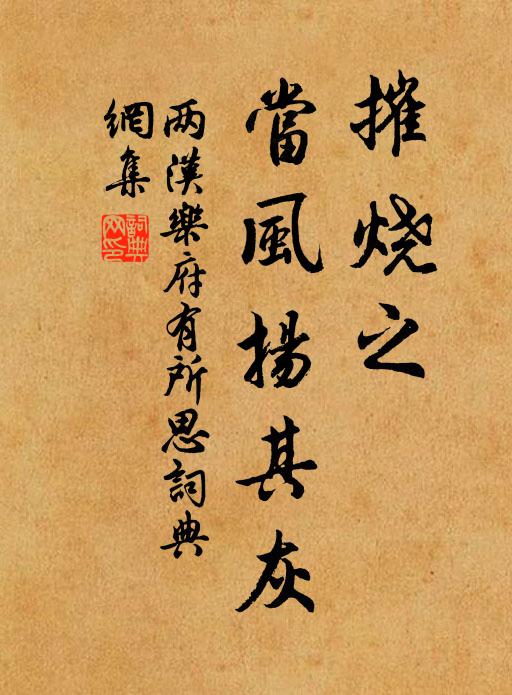 摧烧之
當風揚其灰
两漢樂府有所思詞典
網集
詞典網印